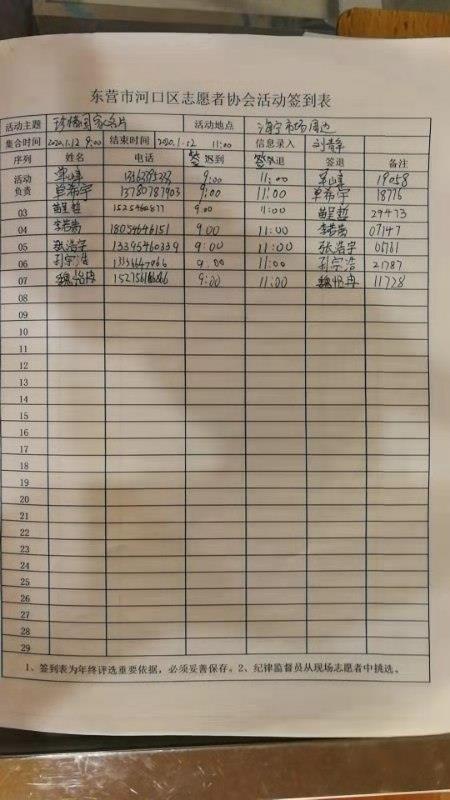 东营市河口区志愿者协会活动签到表
活动主题 珍惜国家名片 活动地点 海宁市场周边
集合时间 2020.1.12 9:00 结束时间 2020.1.12 11:00 信息录入 刘静
序列 姓名 电话 签到 签退 签退 备注
活动 9:00 11:00 19058
负责 单希宇 13780787903 9:00 11:00 单希宇 18776
03 苗呈哲 9:00 11:00 苗呈哲 29473
04 李若菡 18054646151 9:00 11:00 李若菡 07147
05 张浩宇 13395460339 9:00 11:00 张浩宇 05761
06 孔宗浩 9:00 11:00 孔宗浩 21787
07 魏怡冉 9:00 11:00 魏怡冉 11728
08
09
10
11
12
13
14
15
16
17
18
19
20
21
22
23
24
25
26
27
28
29
1、签到表为年终评选重要依据，必须妥善保存。2、纪律监督员从现场志愿者中挑选。